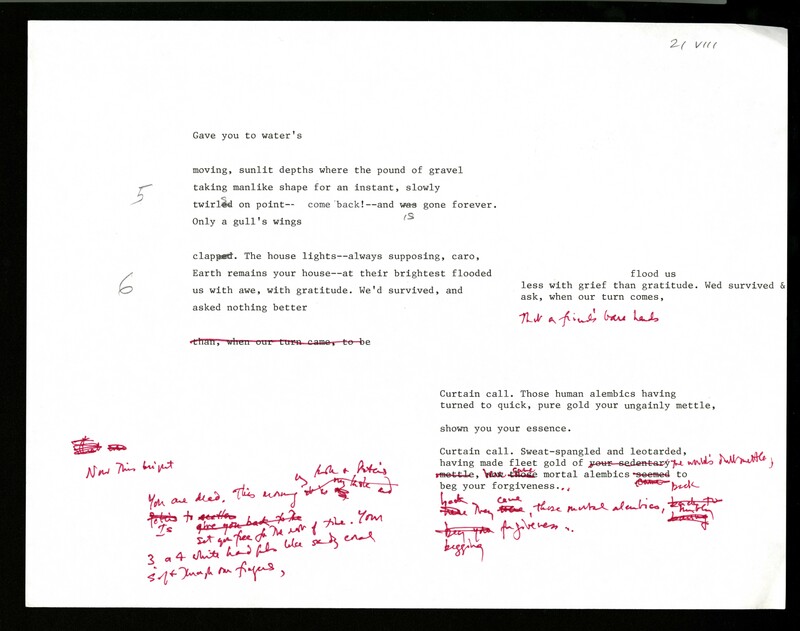 21 VIII
Gave you to water's
moving, sunlit depths where the pound of gravel
5
taking manlike shape for an instant, slowly
twirled on point-- come back!--and was gone forever.
s
is
Only a gull's wings
clapped. The house lights--always supposing, caro,
6
Earth remains your house--at their brightest flooded
us with awe, with gratitude. We'd survived, and
asked nothing better
than, when our turn came, to be
flood us
less with grief than gratitude. Wed survived &
ask, when our turn comes,
That a friend's bare hands
Curtain call. Those human alembics having
turned to quick, pure gold your ungainly mettle,
shown you your essence.
Curtain call. Sweat-spangled and leotarded,
having made fleet gold of your sedentary the world's dull mettle,
mettle, those mortal alembics seemed to
came back
beg your forgiveness...
back
they came, those mortal alembics,
humbly
beg your forgiveness...
begging
Now this bright
You are dead. This evening
Is
to
give you back to the
set you free for the rest of time. Your
3 or 4 white handfuls like sandy coral
sift through our fingers,